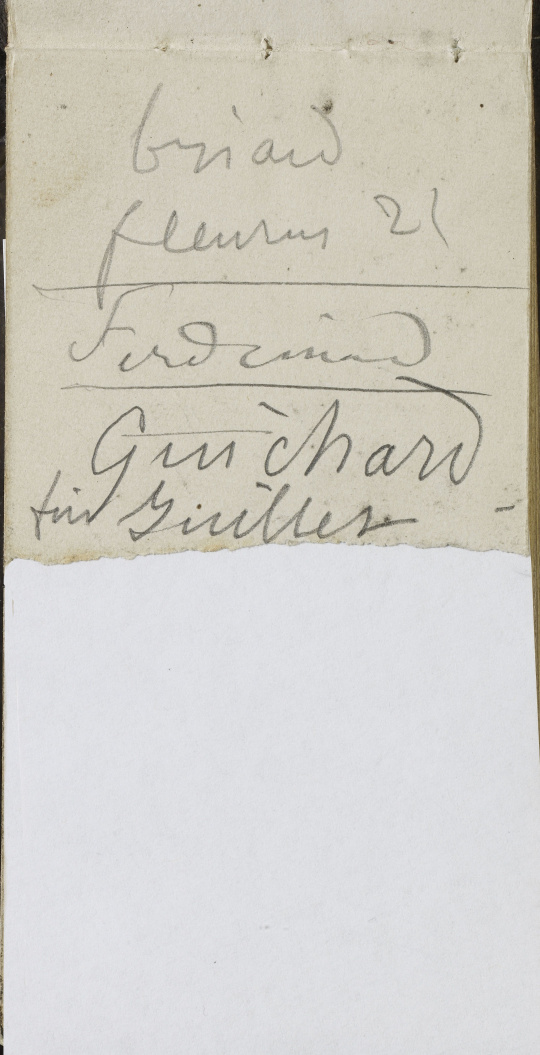 briard
fleurus 21
Ferdinand
Guichard
Guillet